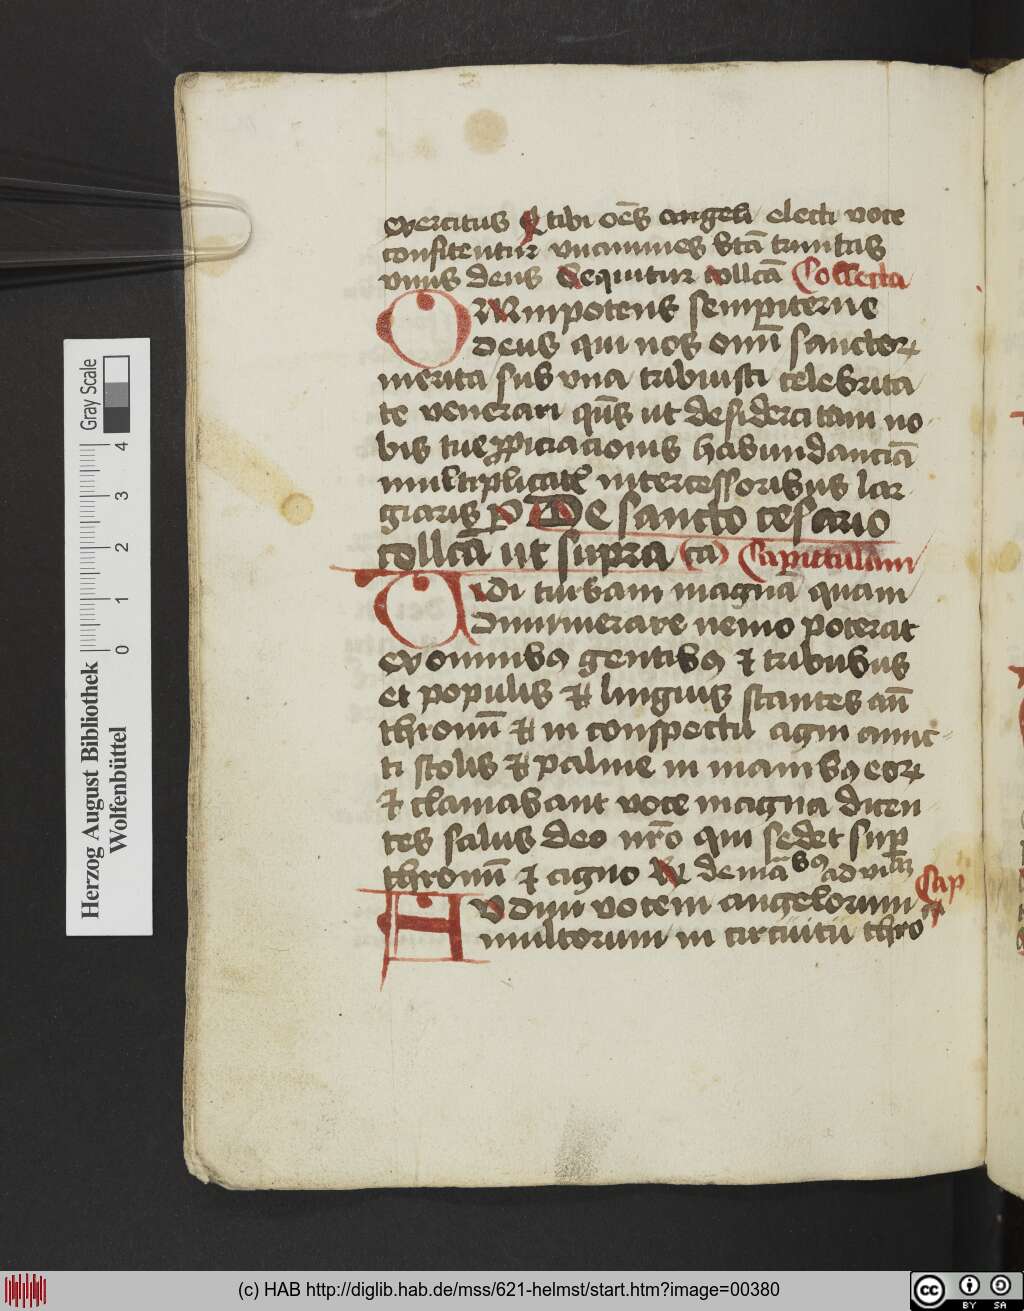 exercitus Et tibi oēs angeli electi voce
confitentur vnanimes btā trinitas
vnus deus Sequitur collcā Collecta
OMnipotens sempiterne
deus qui nos omū sanctoꝝ
merita sub vna tribuisti celebrita
te venerari qūs ut desideratam no
bis tue ꝓpiciacionis habundanciā
multiplicatꝭ intercessoribus lar
giaris p De sancto cesario
collcā ut supra Capitulam
Uidi turbam magnā quam
dinumerare nemo poterat
ex omnibꝯ gentibꝯ et tribubus
et populis et linguis stantes an̄
thronū et in conspectu agni amic
ti stolis et palme in manibꝯ eoꝝ
et clamabant voce magna dicen
tes salus deo nr̄o qui sedet suꝑ
thronū et agno
Cap
AUdiui vocem angelorum
multorum in circuitu thro
Herzog August Bibliothek
Wolfenbüttel
0 1 2 3 4
Gray Scale
(c) HAB http://diglib.hab.de/mss/621-helmst/start.htm?image=00380
cc BY SA